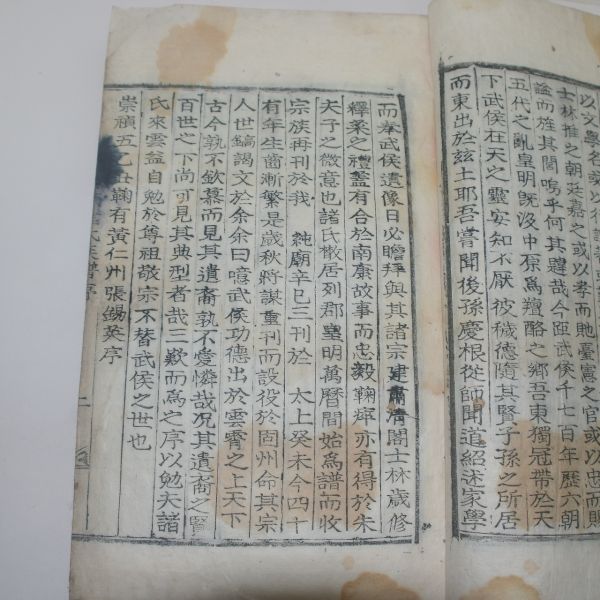 以文學名或以行誼著
士林推之朝廷嘉之或以孝而貤臺憲之官或以忠而賜
謚而旌其閭嗚乎何其韙哉今距武侯千七百年歷六朝
五代之亂皇明旣沒中原爲羶酪之鄉吾東獨冠帶於天
下武侯在天之靈安知不厭彼穢德隲其賢子孫之所居
而東出於玆土耶吾嘗聞後孫慶根從師聞道紹述家學
而奉武侯遺像日必瞻拜與其諸宗建肅淸閣士林歲修
釋菜之禮盖有合於南康故事而忠毅鞠輝亦有得於朱
夫子之微意也諸氏散居列郡皇明萬曆間始爲譜而收
宗族再刊於我 純廟辛巳三刊於 太上癸未今四十
有年生齒漸繁是歲秋將謀重刊而設役於固州命其宗
人世鎬謁文於余余曰噫武侯功德出於雲霄之上天下
古今孰不欽慕而見其遺裔孰不愛憐哉况其遺裔之賢
百世之下尚可見其典型者哉三歎而爲之序以勉夫諸
氏來雲益自勉於尊祖敬宗不替武侯之世也
崇禎五乙丑鞠有黃仁州張錫英序
氏族譜序
二